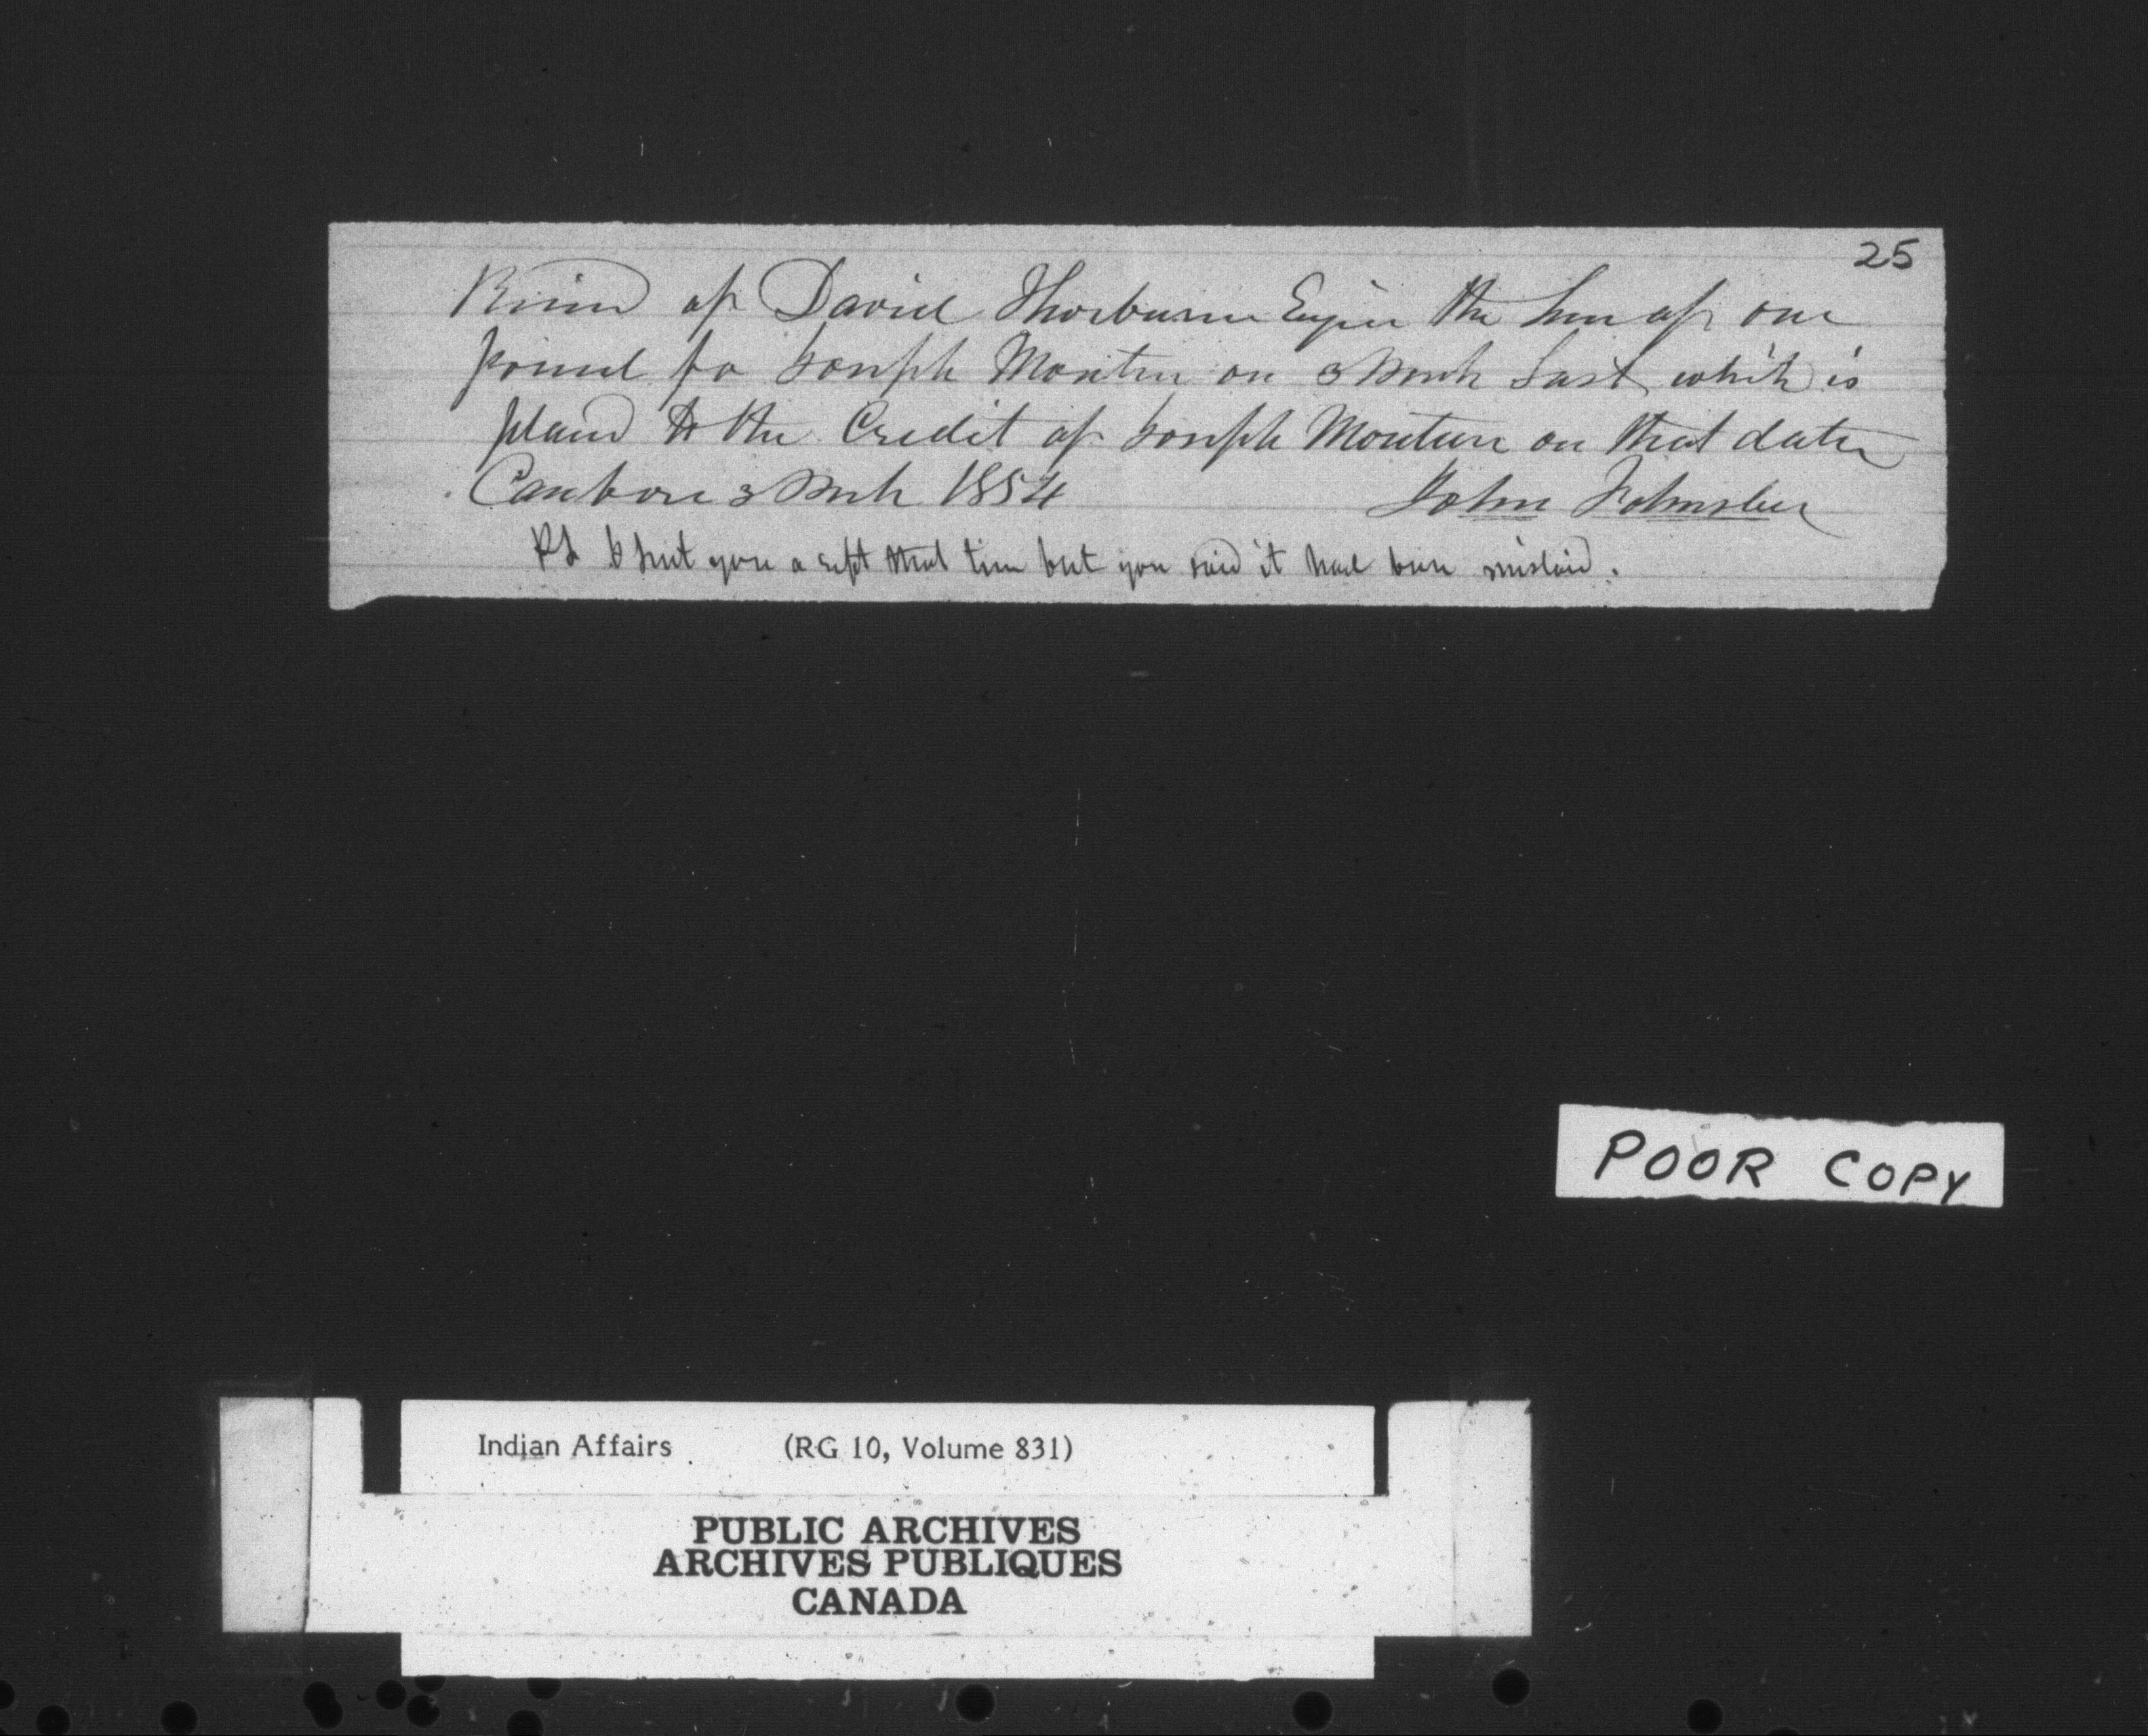 25
Received of David Thorburn Esquire the Sum of one
pound for Joseph Monture on 3 March Last which is
placed to the Credit of Joseph Monture on that date
Canboro 3 March 1854 John Johnston
PS I sent you a rept that time but you said it had been mislaid.
POOR COPY
Indian Affairs (RG 10, Volume 831)
PUBLIC ARCHIVES
ARCHIVES PUBLIQUES
CANADA